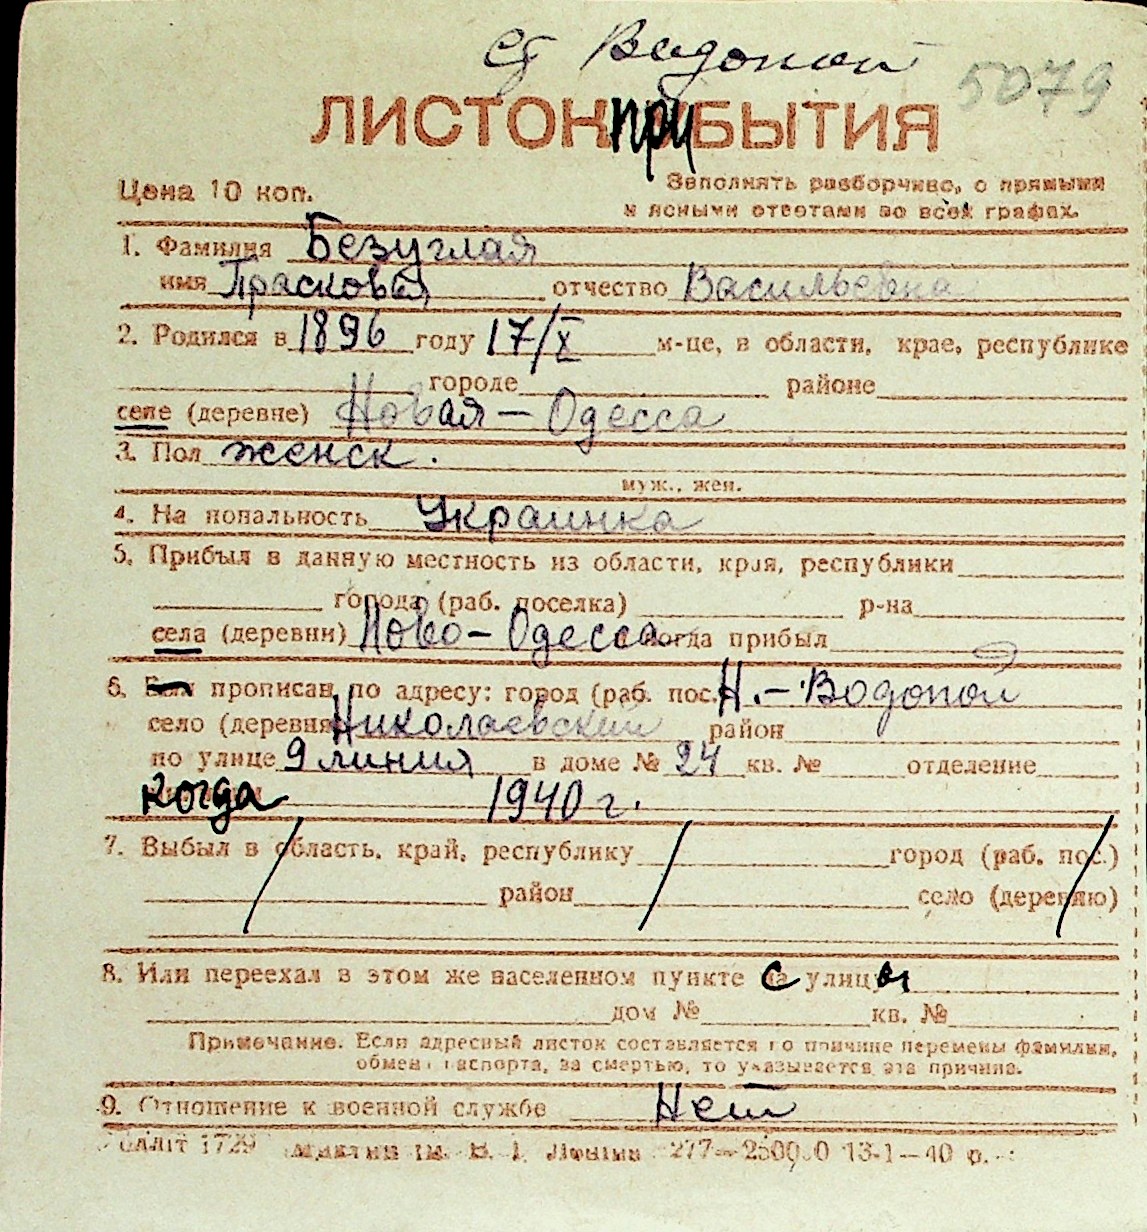 ст Водопой
5079
ЛИСТОК ПРИБЫТИЯ
Цена 10 коп.
Заполнять разборчиво, с прямыми
и ясными ответами во всех графах.
1. Фамилия Безуглая
имя Прасковья отчество Васильевна
2. Родился в 1896 году 17/X м-це, в области, крае, республике
городе районе
селе (деревне) Новая-Одесса
3. Пол женск.
муж., жен.
4. Национальность Украинка
5. Прибыл в данную местность из области, края, республики
города (раб. поселка) р-на
села (деревни) Ново-Одесса когда прибыл
6. Был прописан по адресу: город (раб. пос. Н.-Водопой
село (деревня Николаевский район
по улице 9 линия в доме № 24 кв. № отделение
когда 1940 г.
7. Выбыл в область, край, республику город (раб. пос.)
район село (деревню)
8. Или переехал в этом же населенном пункте с улицы
дом № кв. №
Примечание. Если адресный листок составляется по причине перемены фамилии,
обмена паспорта, за смертью, то указывается эта причина.
9. Отношение к военной службе Нет
1729 ім. В. І. Леніна 277—2500.0 13-1—40 р.